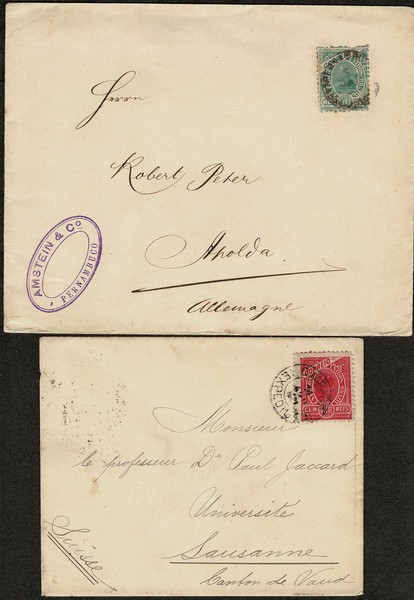 Herrn
Robert Peter
Apolda.
Allemagne
AMSTEIN & Co
PERNAMBUCO
EXPED
CEM REIS
Monsieur
le professeur Dr Paul Jaccard
Université
Lausanne
Canton de Vaud
Suisse